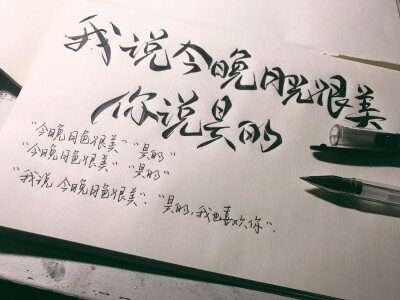 我说今晚月色很美
你说是的
"今晚月色很美" "是的"
"今晚月色很美" "是的"
"我说 今晚月色很美". "是的,我也喜欢你".